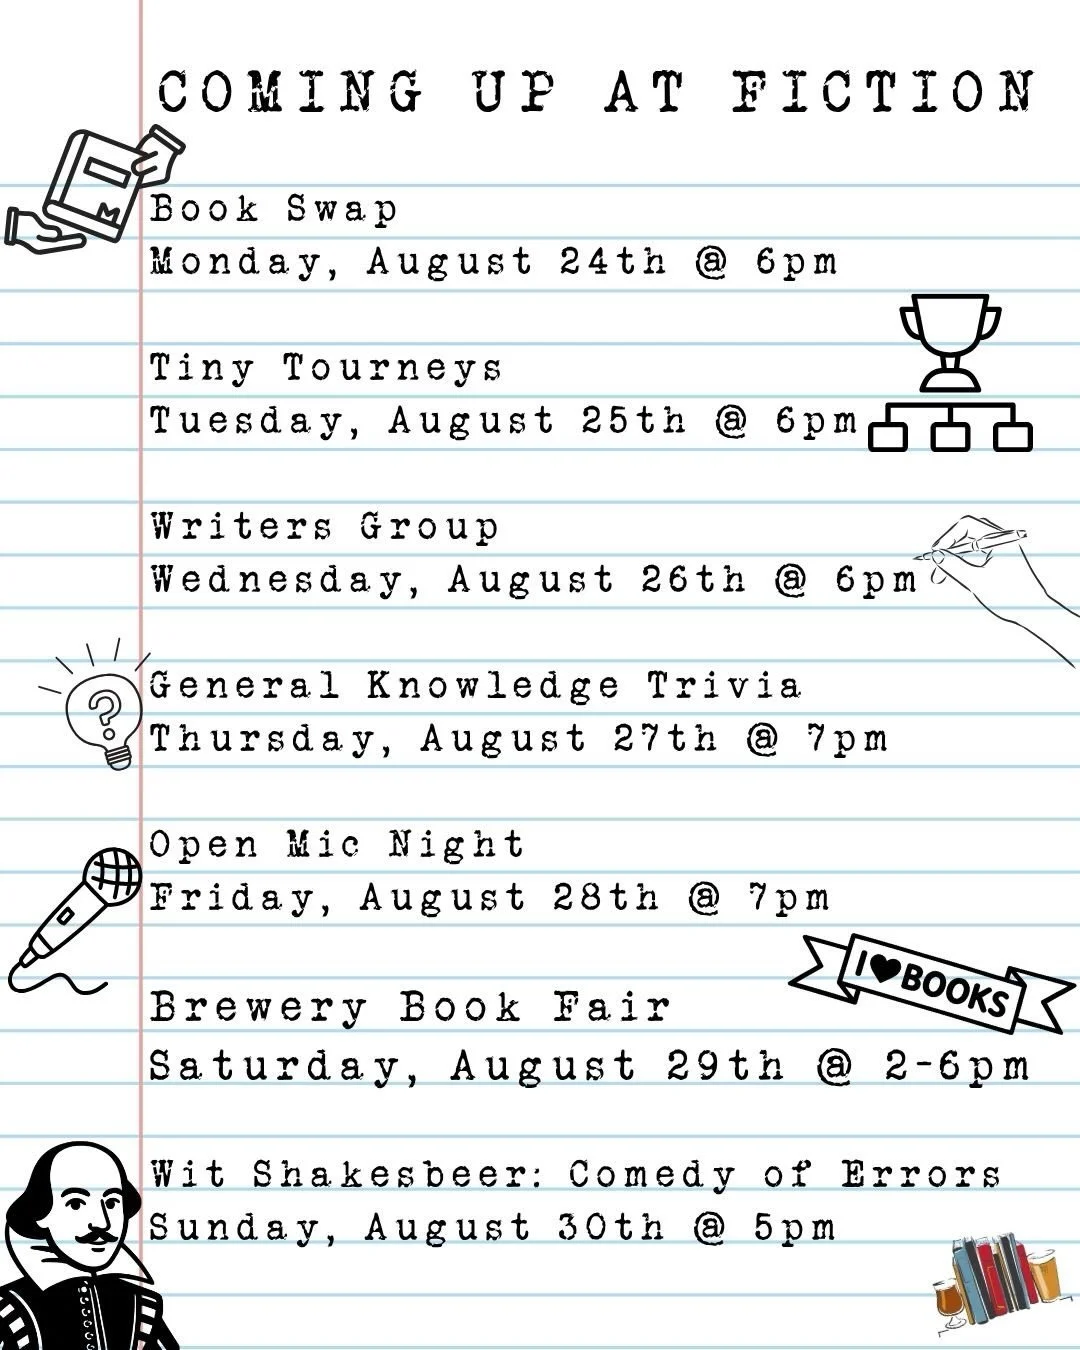 COMING UP AT FICTION
M
Book Swap
Monday, August 24th @ 6pm
Tiny Tourneys
Tuesday, August 25th @ 6pm
Writers Group
Wednesday, August 26th @ 6pm
?
General Knowledge Trivia
Thursday, August 27th @ 7pm
Open Mic Night
Friday, August 28th @ 7pm
I♥BOOKS
Brewery Book Fair
Saturday, August 29th @ 2-6pm
Wit Shakesbeer: Comedy of Errors
Sunday, August 30th @ 5pm